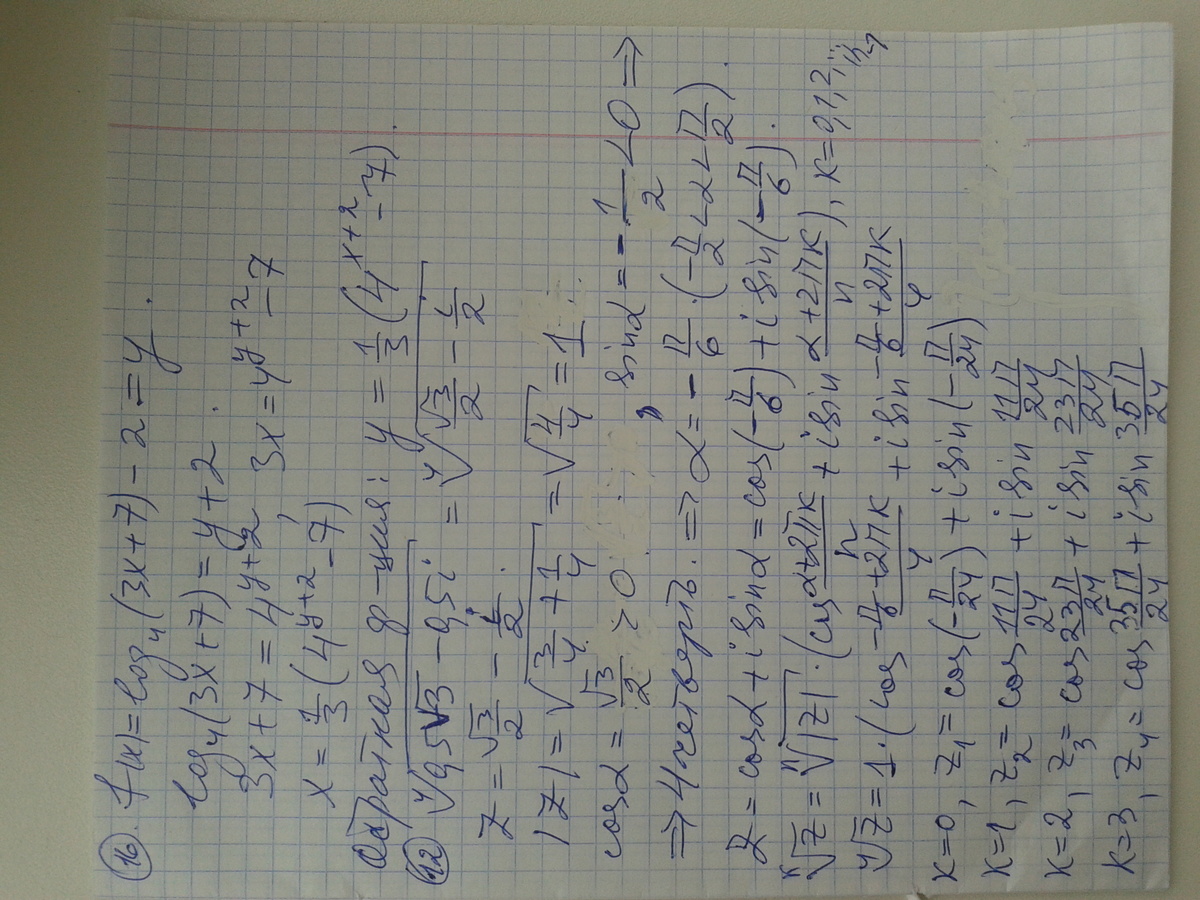 16. f(x) = log₄(3x+7) - 2 = y
log₄(3x+7) = y+2.
3x+7 = 4^(y+2), 3x = 4^(y+2) - 7
x = 1/3 (4^(y+2) - 7)
Обратная ф-ция: y = 1/3 (4^(x+2) - 7).
12 ⁴√(0,5√3 - 0,5i) = ⁴√(√3/2 - i/2)
z = √3/2 - i/2.
|z| = √(3/4 + 1/4) = √(4/4) = 1.
cosα = √3/2 > 0, sinα = -1/2 < 0 ⇒
⇒ 4 четверть. ⇒ α = -π/6. (-π/2 < α < π/2).
z = cosα + i sinα = cos(-π/6) + i sin(-π/6).
ⁿ√z = ⁿ√|z| · (cos (α+2πk)/n + i sin (α+2πk)/n), k = 0,1,2,...,n-1
⁴√z = 1·(cos (-π/6+2πk)/4 + i sin (-π/6+2πk)/4
k=0, z₁ = cos(-π/24) + i sin(-π/24)
k=1, z₂ = cos 11π/24 + i sin 11π/24
k=2, z₃ = cos 23π/24 + i sin 23π/24
k=3, z₄ = cos 35π/24 + i sin 35π/24